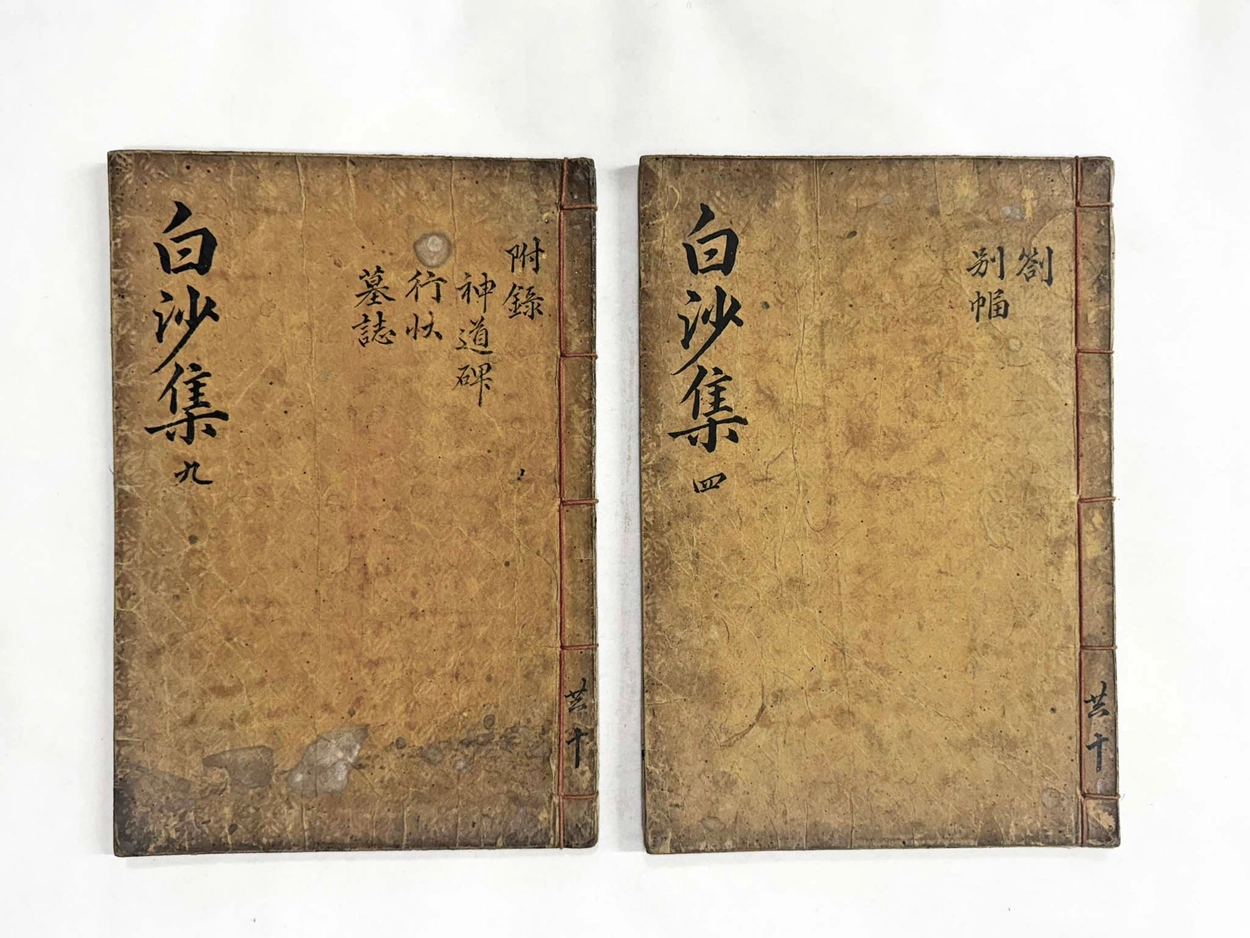 白沙集 九
附錄
神道碑
行狀
墓誌
共十
白沙集 四
劄
別幅
共十